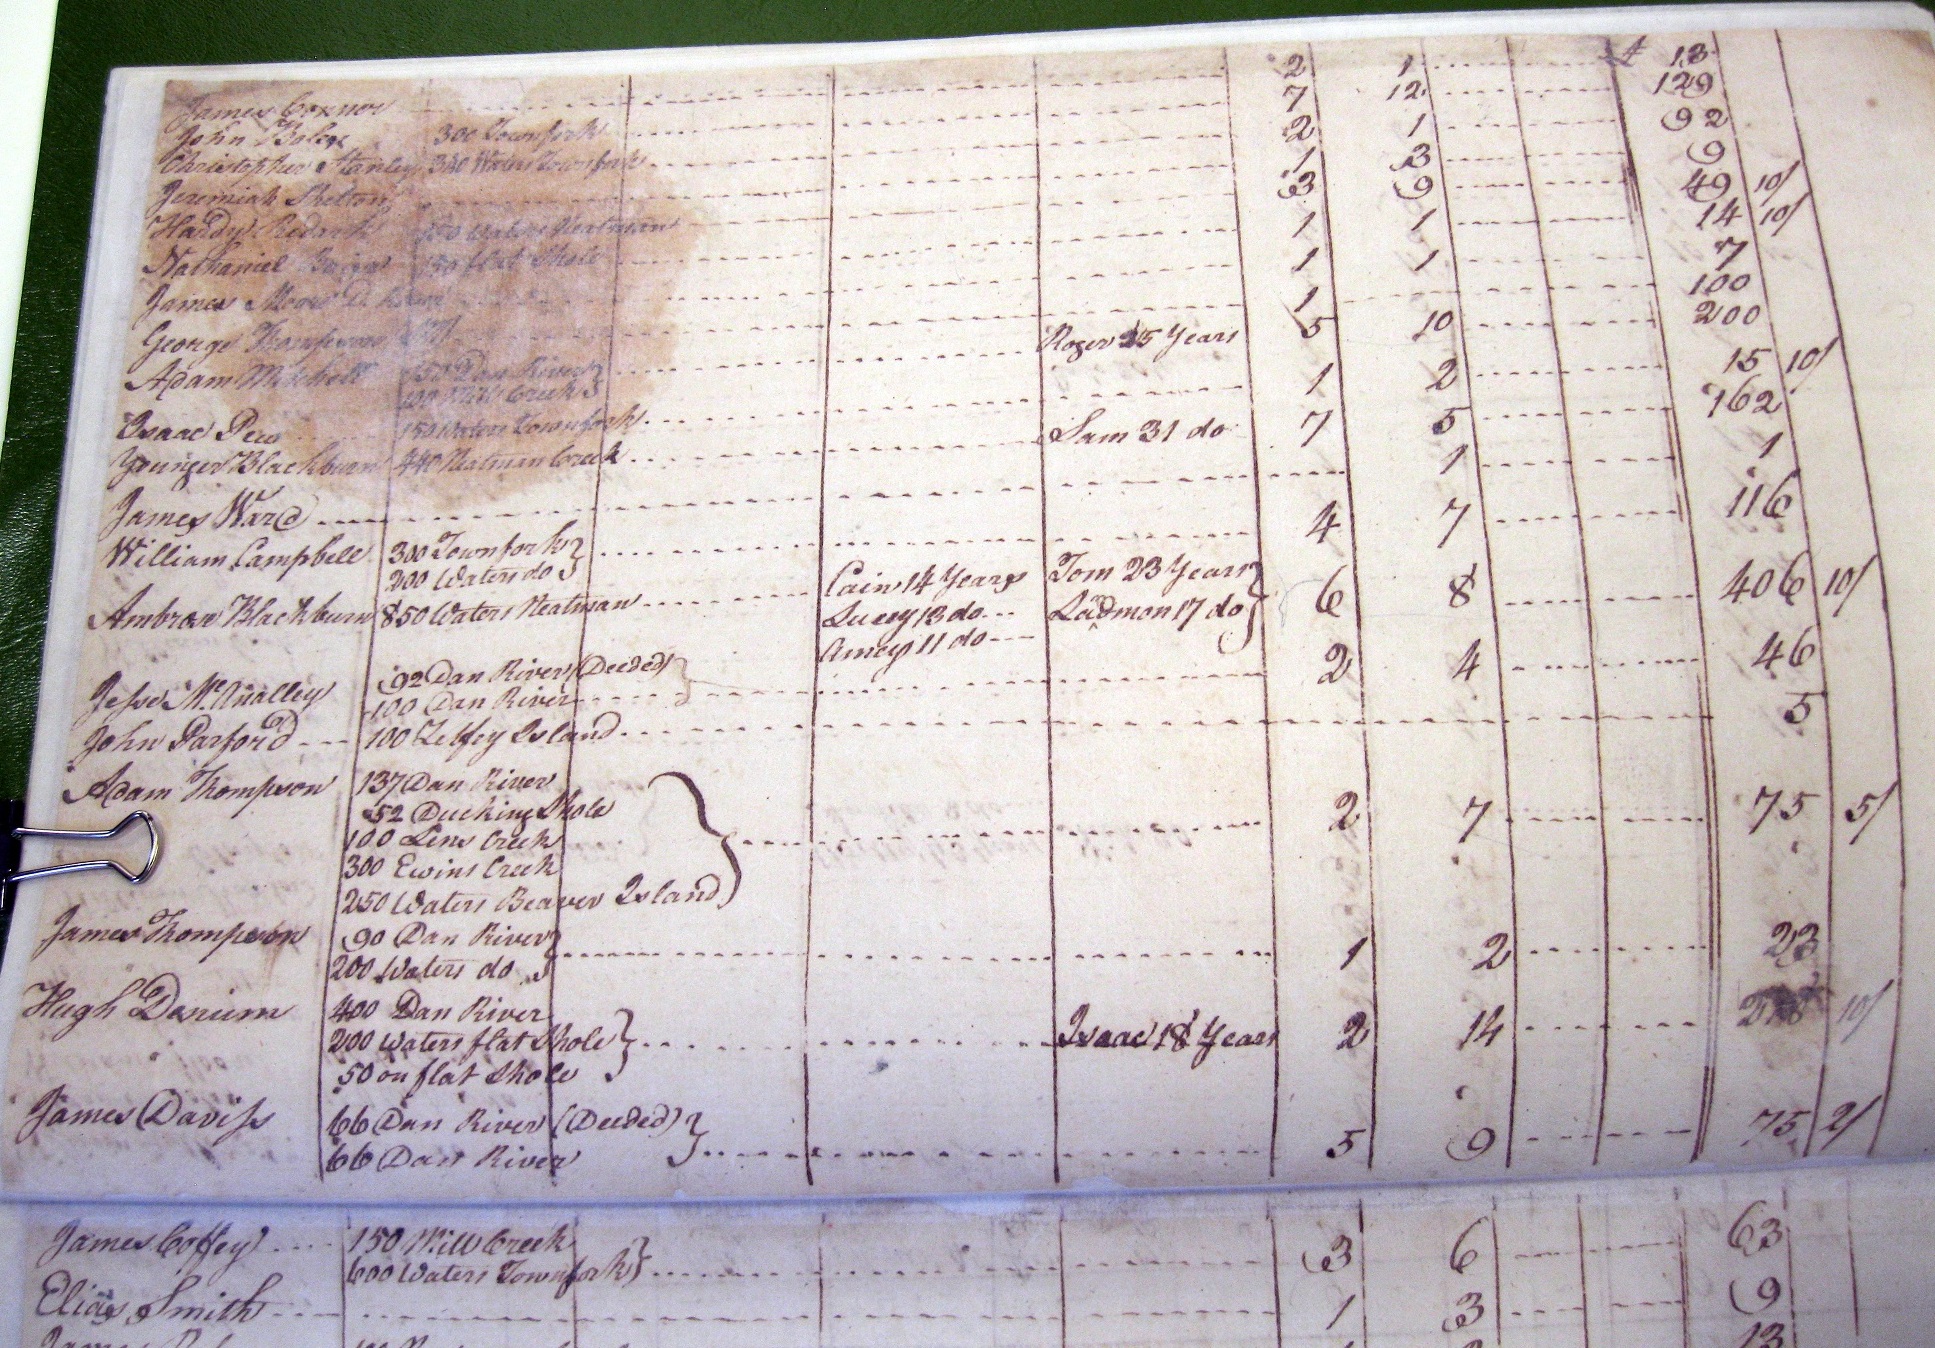 James Connor 2 1 £ 13
John 300 Townfork 7 12 129
Christopher Stanley 340 Waters Townfork 2 1 92
Jeremiah Shelton 1 3 9
Hardy 150 Waters Neatman 3 9 49 10/
Nathaniel 150 flat Shole 1 1 14 10/
James 1 1 7
George Thompson 1 100
Adam Mitchell 150 Dan River Roger 25 Years 5 10 200
100 Mill Creek
Isaac Pew 150 Waters Townfork 1 2 15 10/
Younger Blackburn 440 Neatman Creek Sam 31 do 7 5 162
James Ward 1 1
William Campbell 300 Townfork 4 7 116
200 Waters do
Ambrose Blackburn 850 Waters Neatman Cain 14 Years Tom 23 Years 6 8 406 10/
Lucey 13 do Ladmon 17 do
Amey 11 do
Jesse McAnalley 92 Dan River (Deeded) 2 4 46
100 Dan River
John Parford 100 Zelfey Island 5
Adam Thompson 137 Dan River 2 7 75 5/
52 Ducking Shole
100 Lens Creek
300 Ewins Creek
250 Waters Beaver Island
James Thompson 90 Dan River 1 2 23
200 Waters do
Hugh Denium 400 Dan River 10/
200 Waters flat Shole Isaac 18 Years 2 14
50 on flat Shole
James Daviss 66 Dan River (Deeded) 5 9 75 2/
66 Dan River
James Coffey 150 Mill Creek 3 6 63
600 Waters Townfork
Elias Smith 1 3 9
James 13